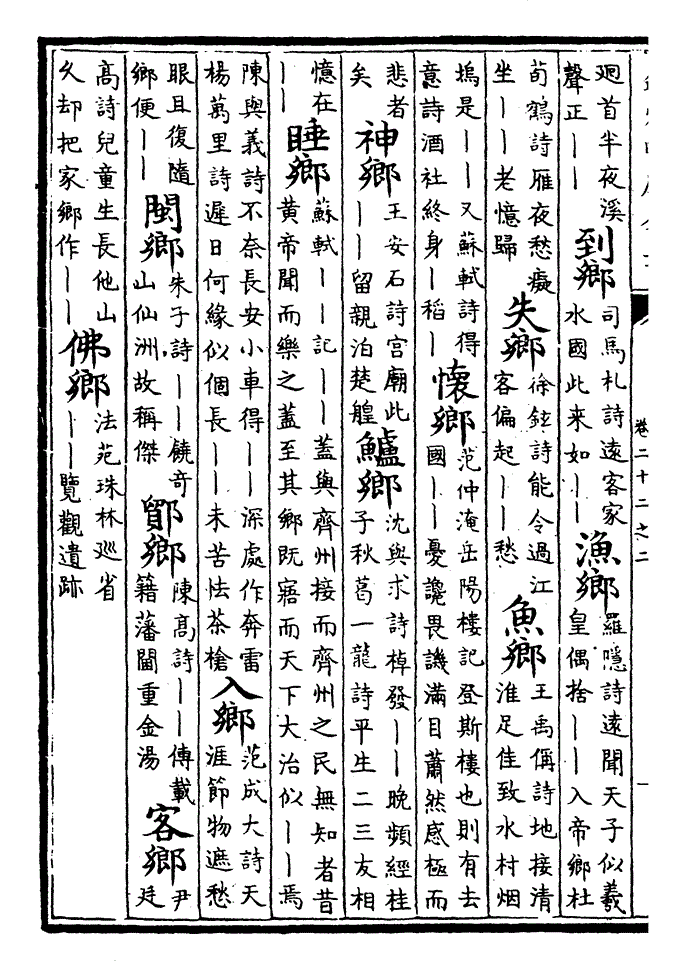 廻首半夜溪
聲正丨丨
到鄉
司馬札詩遠客家
水國此来如丨丨
漁鄉
羅隱詩遠聞天子似羲
皇偶捨丨丨入帝鄉杜
荀鶴詩雁夜愁癡
坐丨丨老憶歸
失鄉
徐鉉詩能令過江
客偏起丨丨愁
魚鄉
王禹偁詩地接清
淮足佳致水村烟
塢是丨丨又蘇軾詩得
意詩酒社終身丨稻丨
懷鄉
范仲淹岳陽樓記登斯樓也則有去
國丨丨憂讒畏譏滿目蕭然感極而
悲者
矣
神鄉
王安石詩宫廟此
丨丨留親泊楚艎
鱸鄉
沈與求詩棹發丨丨晚頻經桂
子秋葛一龍詩平生二三友相
憶在
丨丨
睡鄉
蘇軾丨丨記丨丨蓋與齊州接而齊州之民無知者昔
黄帝聞而樂之蓋至其鄉既寤而天下大治似丨丨焉
陳與義詩不奈長安小車得丨丨深處作奔雷
楊萬里詩遲日何緣似個長丨丨未苦怯茶槍
入鄉
范成大詩天
涯節物遮愁
眼且復隨
鄉便丨丨
閩鄉
朱子詩丨丨饒奇
山仙洲故稱傑
鄮鄉
陳高詩丨丨傳載
籍藩閫重金湯
客鄉
尹
廷
高詩兒童生長他山
久却把家鄉作丨丨
佛鄉
法苑珠林巡省
丨丨覽觀遺跡
卷二十二之二
一